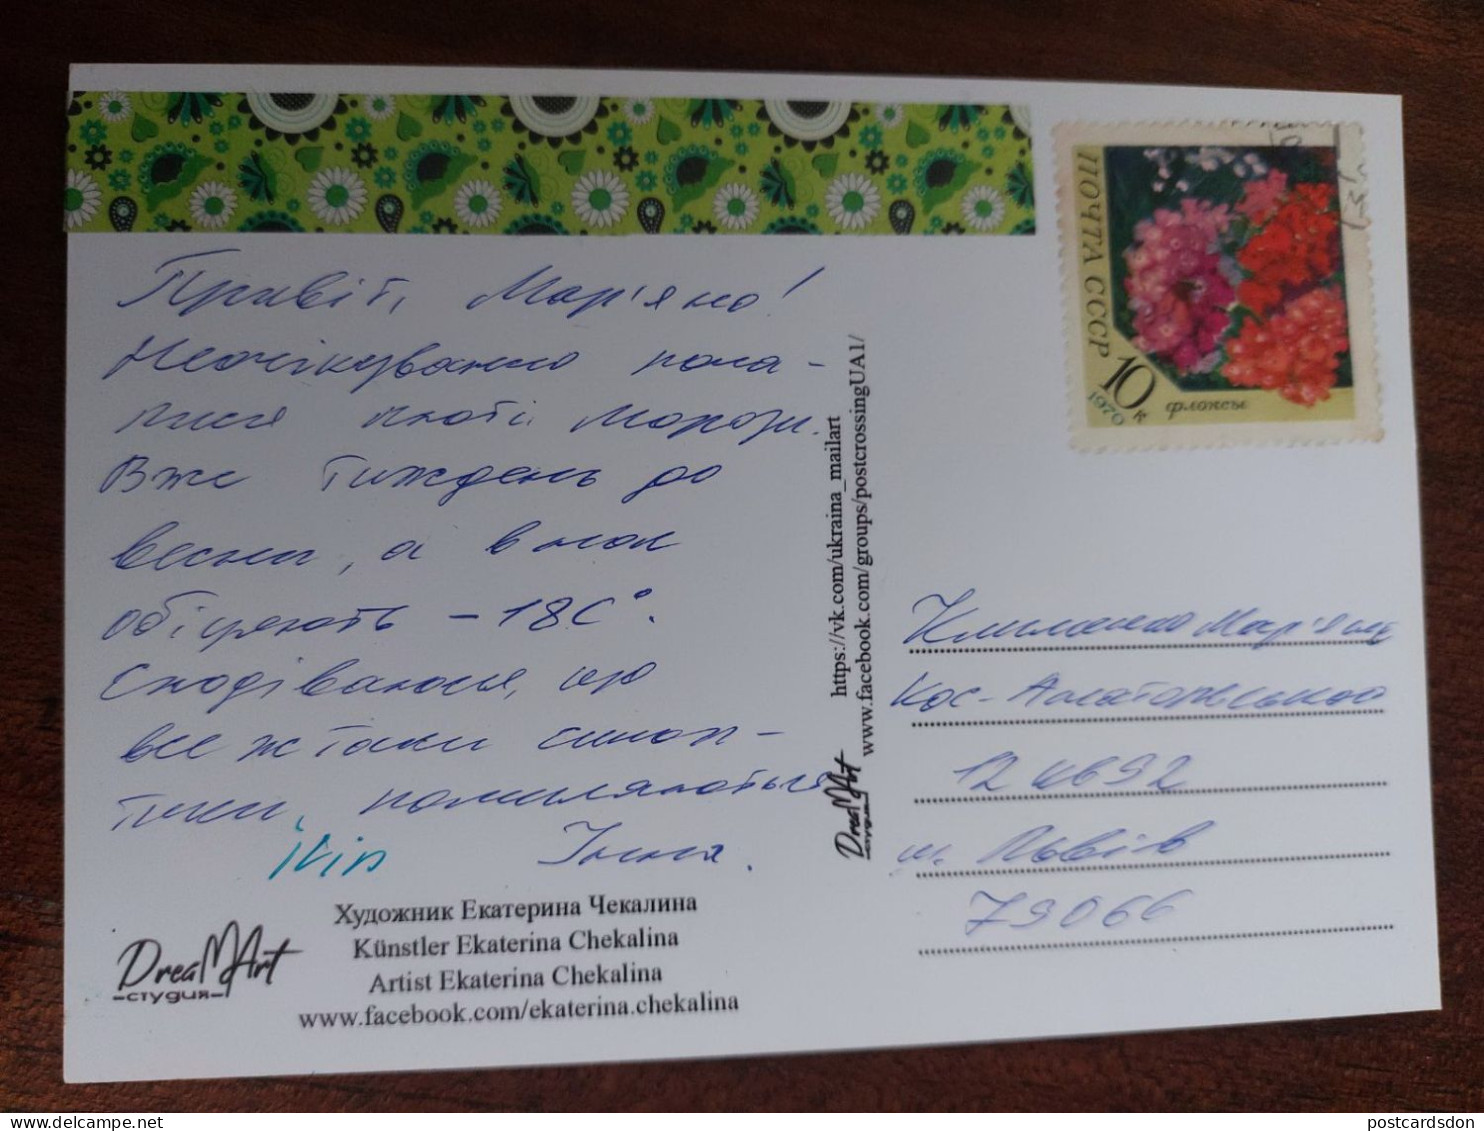 Привіт, Мар'яно!
Неочікувано почa-
лися люті морози.
Вже тиждень до
весни, а в нас
обіцяють -18С°.
Сподіваюся, що
все ж таки синоп-
тики помиляються
Інна.
Художник Екатерина Чекалина
Künstler Ekaterina Chekalina
Artist Ekaterina Chekalina
www.facebook.com/ekaterina.chekalina
DreaMArt
студия
https://vk.com/ukraina_mailart
www.facebook.com/groups/postcrossingUA1/
DreaMArt
студия
ПОЧТА СССР
10 к
1970
флоксы
Клименко Мар'яні
Кос-Анатольського
12 кв 92
м. Львів
79066
postcardsdon